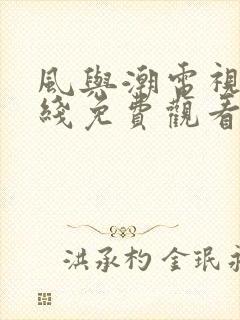 風與潮電視
綫免費觀看
洪承杓金珉永